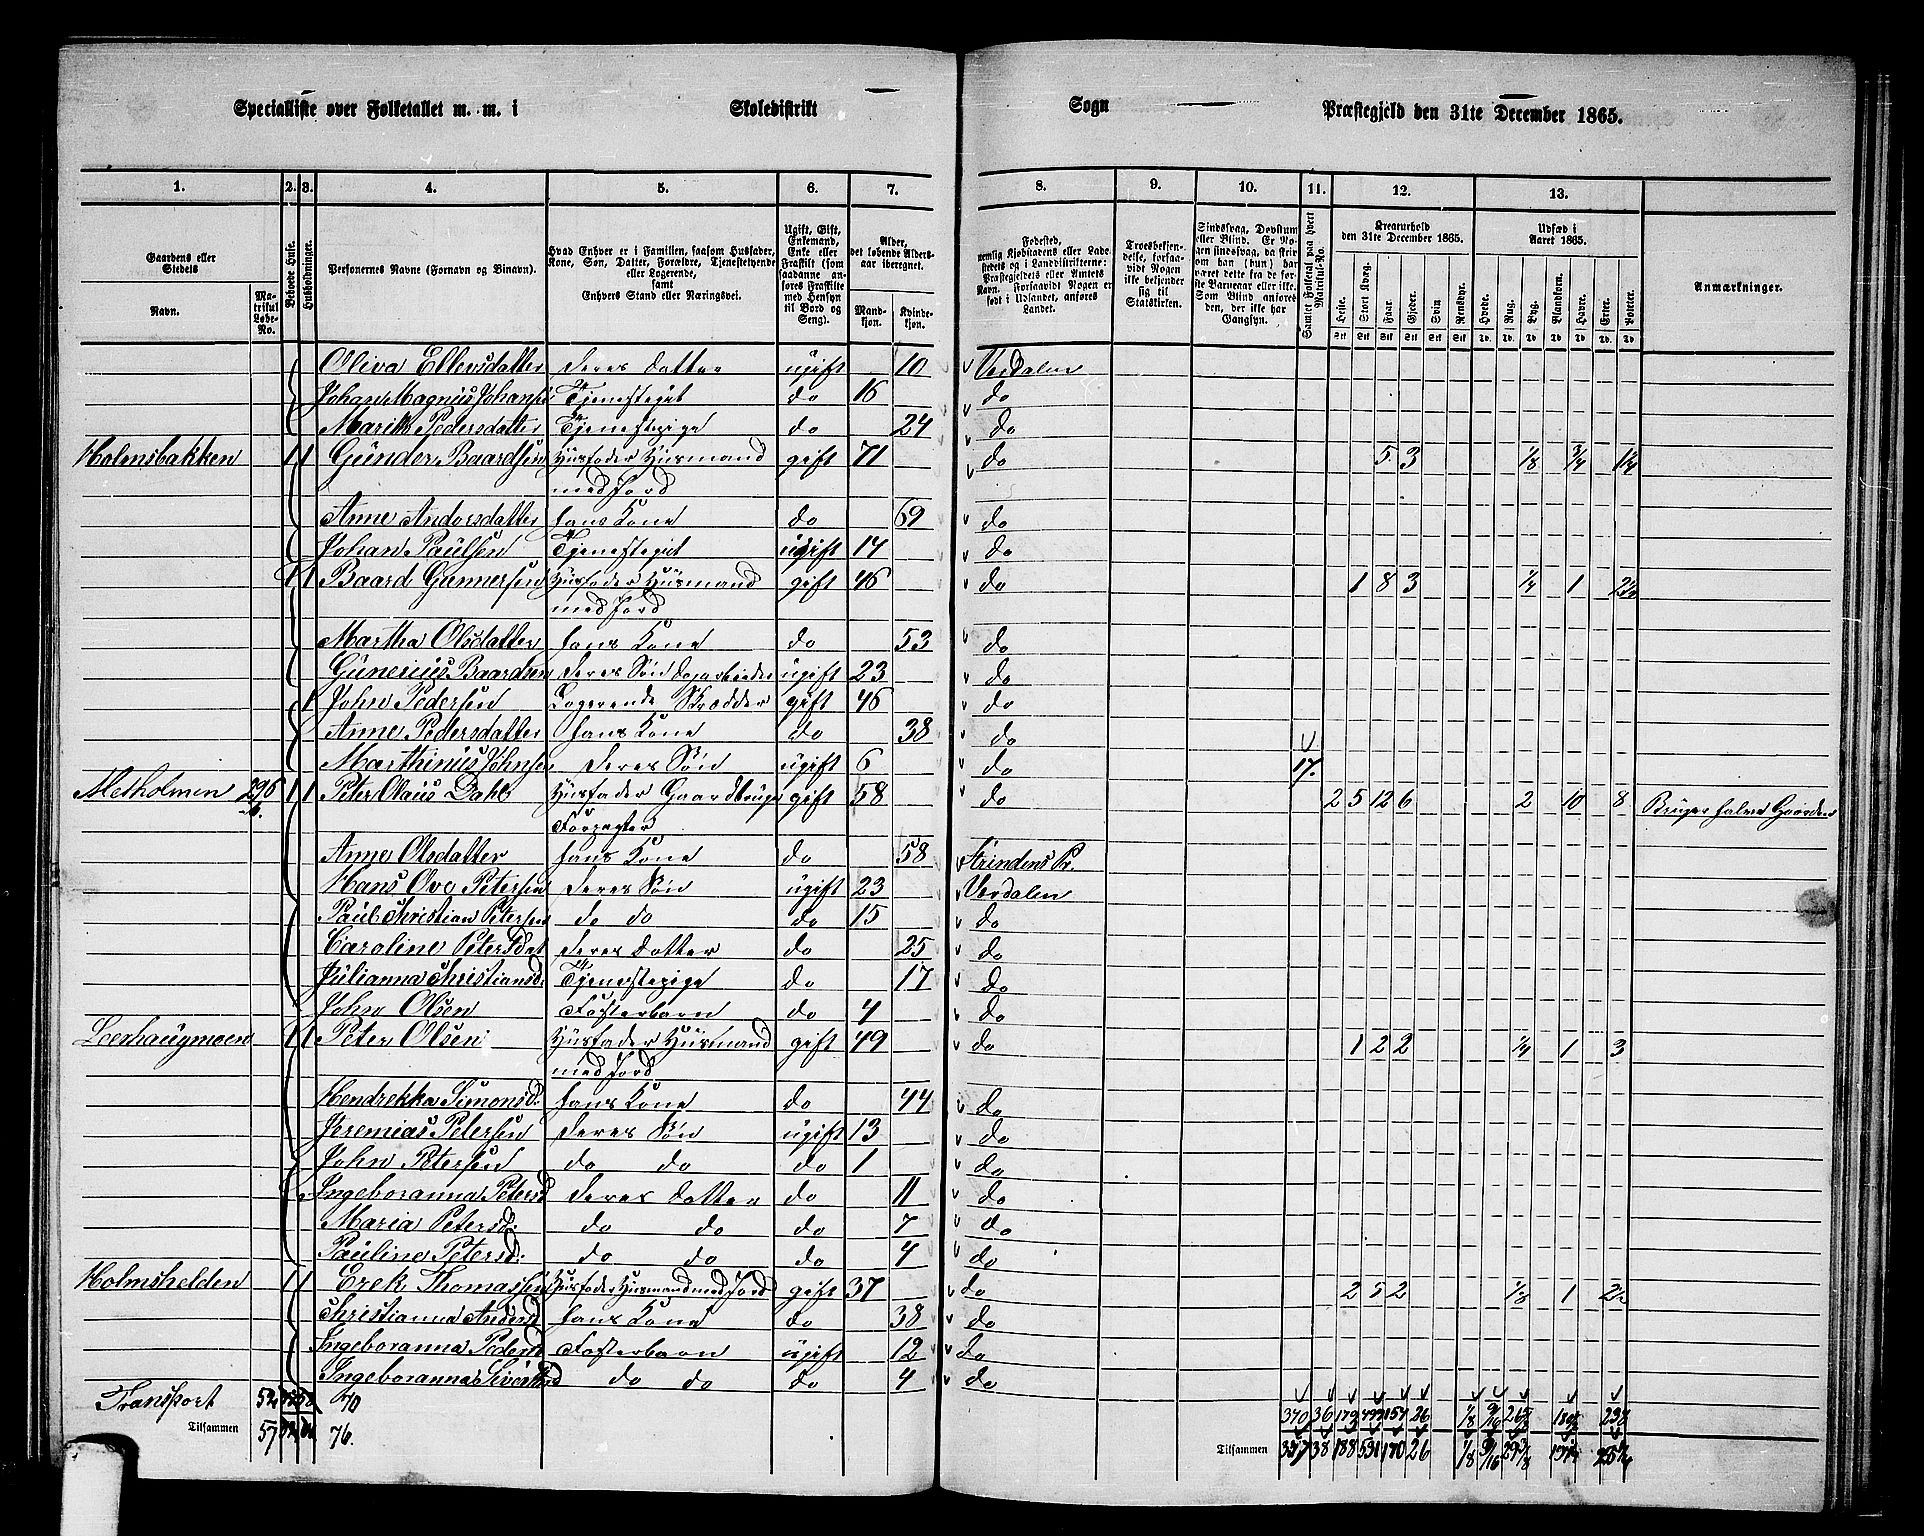 Specialliste over Folketallet m. m. i — Skoledistrikt — Sogn — Præstegjeld den 31te December 1865.
1. 2. 3. 4. 5. 6. 7. 8. 9. 10. 11. 12. 13.
Gaardens eller Stedets
Navn.
Matrikul Løbe-No.
Beboede Huse.
Husholdninger.
Personernes Navne (Fornavn og Binavn).
Hvad Enhver er i Familien, saasom Husfader, Kone, Søn, Datter, Forældre, Tjenestetyende eller Logerende, samt Enhvers Stand eller Næringsvei.
Ugift, Gift, Enkemand, Enke eller Fraskilt (som saadanne anføres Fraskilte med Hensyn til Bord og Seng).
Alder, det løbende Aldersaar iberegnet.
Mandkjøn. Kvindekjøn.
Fødested, nemlig Kjøbstadens eller Ladestedets og i Landdistrikterne: Præstegjeldets eller Amtets Navn. Forsaavidt Nogen er født i Udlandet, anføres Landet.
Troesbekjendelse, forsaavidt Nogen ikke bekjender sig til Statskirken.
Sindssvag, Døvstum eller Blind. Er Nogen sindssvag, da skrives om han (hun) har været dette fra de første Barneaar eller ikke. Som Blind anføres den, der ikke har Gangsyn.
Samlet Folketal paa hvert Matrikul-No.
Kreaturhold den 31te December 1865.
Heste. Stort Kvæg. Faar. Gjeder. Svin. Rensdyr.
Udsæd i Aaret 1865.
Hvede. Rug. Byg. Blandkorn. Havre. Erter. Poteter.
Anmærkninger.
Oliva Ellevsdatter deres datter ugift 10 Verdalen
Johan Magnus Johans: Tjenestegut do 16 do
Marik Pedersdatter Tjenestepige do 24 do
Holmsbakken 1 1 Gunder Baardsen Husfader Husmand gift 71 do 5 3 1/8 3/4 1 1/4
med Jord
Anne Andersdatter hans Kone do 69 do
Johan Paulsen Tjenestegut ugift 14 do
1 1 Baard Gunnersen Husfader Husmand gift 46 do 1 8 3 1/4 1 2 1/2
med Jord
Martha Olsdatter hans Kone do 53 do
Gunerius Baardsen deres Søn Dagarbeider ugift 23 do
1 John Pedersen Logerende Skrædder gift 46 do
Anne Pedersdatter hans Kone do 38 do
Marthinus Johnsen deres Søn ugift 6 do 17.
Melholmen 296 1 1 Peter Olaus Dahl Husfader Gaardbruger gift 58 do 2 5 12 6 2 10 8 Bruger halve Gaarden
Forpagter
Anne Olsdatter hans Kone do 58 Strindens Pr.
Hans Ove Petersen deres Søn ugift 23 Verdalen
Paul Christian Petersen do do do 15 do
Caroline Petersdat deres datter do 25 do
Julianna Christiansd: Tjenestepige do 17 do
John Olsen Fosterbarn do 4 do
Leerhaugmoen 1 1 Peter Olsen Husfader Husmand gift 49 do 1 2 2 1/4 1 3
med Jord
Hendrekka Simonsd: hans Kone do 44 do
Jeremias Petersen deres Søn ugift 13 do
John Petersen do do do 1 do
Ingeboranna Petersd deres datter do 11 do
Maria Petersd: do do do 7 do
Pauline Petersd: do do do 4 do
Holmshelden 1 1 Erek Thomassen Husfader Husmand med Jord gift 37 do 2 5 2 1/8 1 2 1/2
Christianna Andersd hans Kone do 38 do
Ingeboranna Pedersd Fosterbarn ugift 12 do
Ingeboranna Siversd do do do 4 do
Transport 52 70 340 36 173 493 157 26 1/8 9/16
Tilsammen 57 76. Tilsammen 357 38 188 531 170 26 1/8 9/16